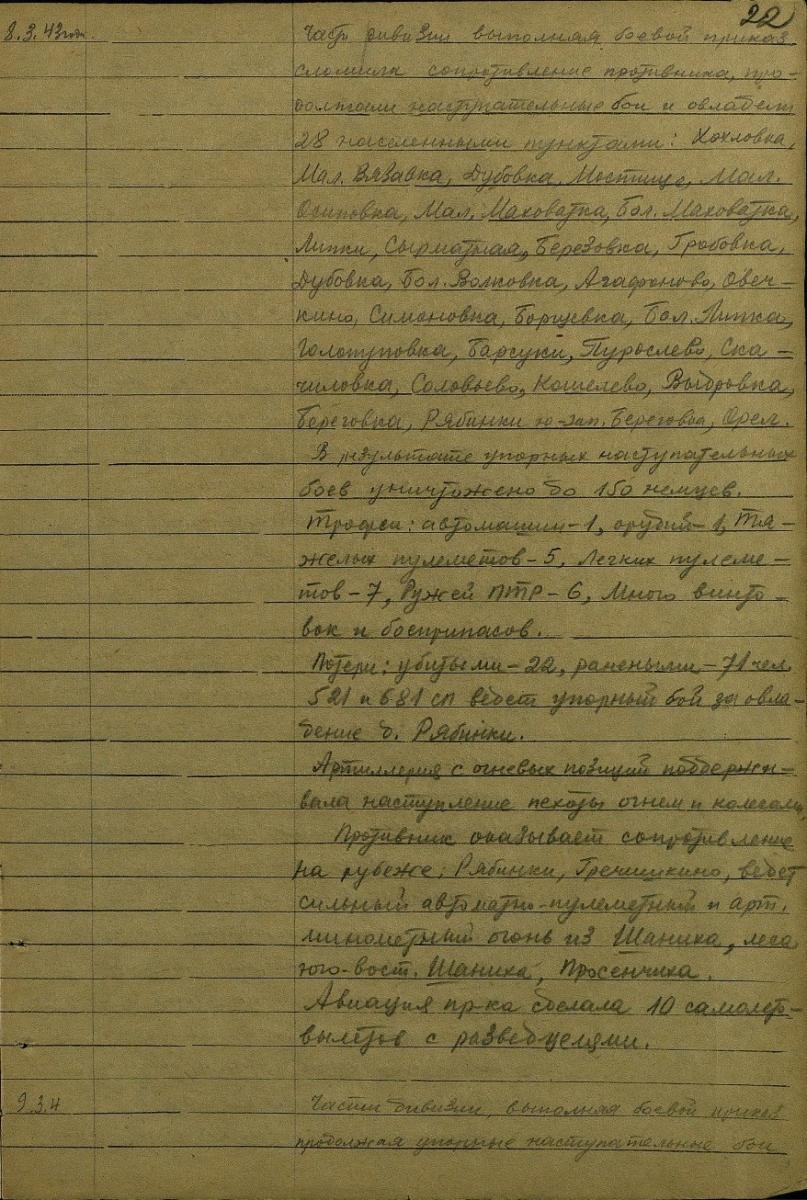 22
8.3.43 года. Части дивизии выполняя боевой приказ
сломили сопротивление противника, про-
должали наступательные бои и овладели
28 населенными пунктами: Хохловка,
Мал. Вязавка, Дубовка, Мостище, Мал.
Осиповка, Мал. Маховатка, Бол. Маховатка,
Липки, Сырматная, Березовка, Гробовка,
Дубовка, Бол. Волковка, Агафоново, Овеч-
кино, Симоновка, Борщевка, Бол. Липка,
Голотуповка, Барсуки, Пурослево, Ска-
чиловка, Соловьево, Кошелево, Выдровка,
Береговка, Рябинки ю-зап. Береговка, Орел.
В результате упорных наступательных
боев уничтожено до 150 немцев.
Трофеи: автомашин-1, орудий-1, тя-
желых пулеметов-5, легких пулеме-
тов-7, Ружей ПТР-6, много винто-
вок и боеприпасов.
Потери: убитыми-22, ранеными-71 чел
521 и 681 сп ведет упорный бой за овла-
дение д. Рябинки.
Артиллерия с огневых позиций поддержи-
вала наступление пехоты огнем и колесами,
Противник оказывает сопротивление
на рубеже: Рябинки, Гречишкино, ведет
сильный автоматно-пулеметный и арт.
минометный огонь из Шаниха, леса
юго-вост. Шаниха, Просенчиха.
Авиация пр-ка сделала 10 самолето-
вылетов с разведцелями.
9.3.4 Части дивизии, выполняя боевой приказ
продолжая упорные наступательные бои